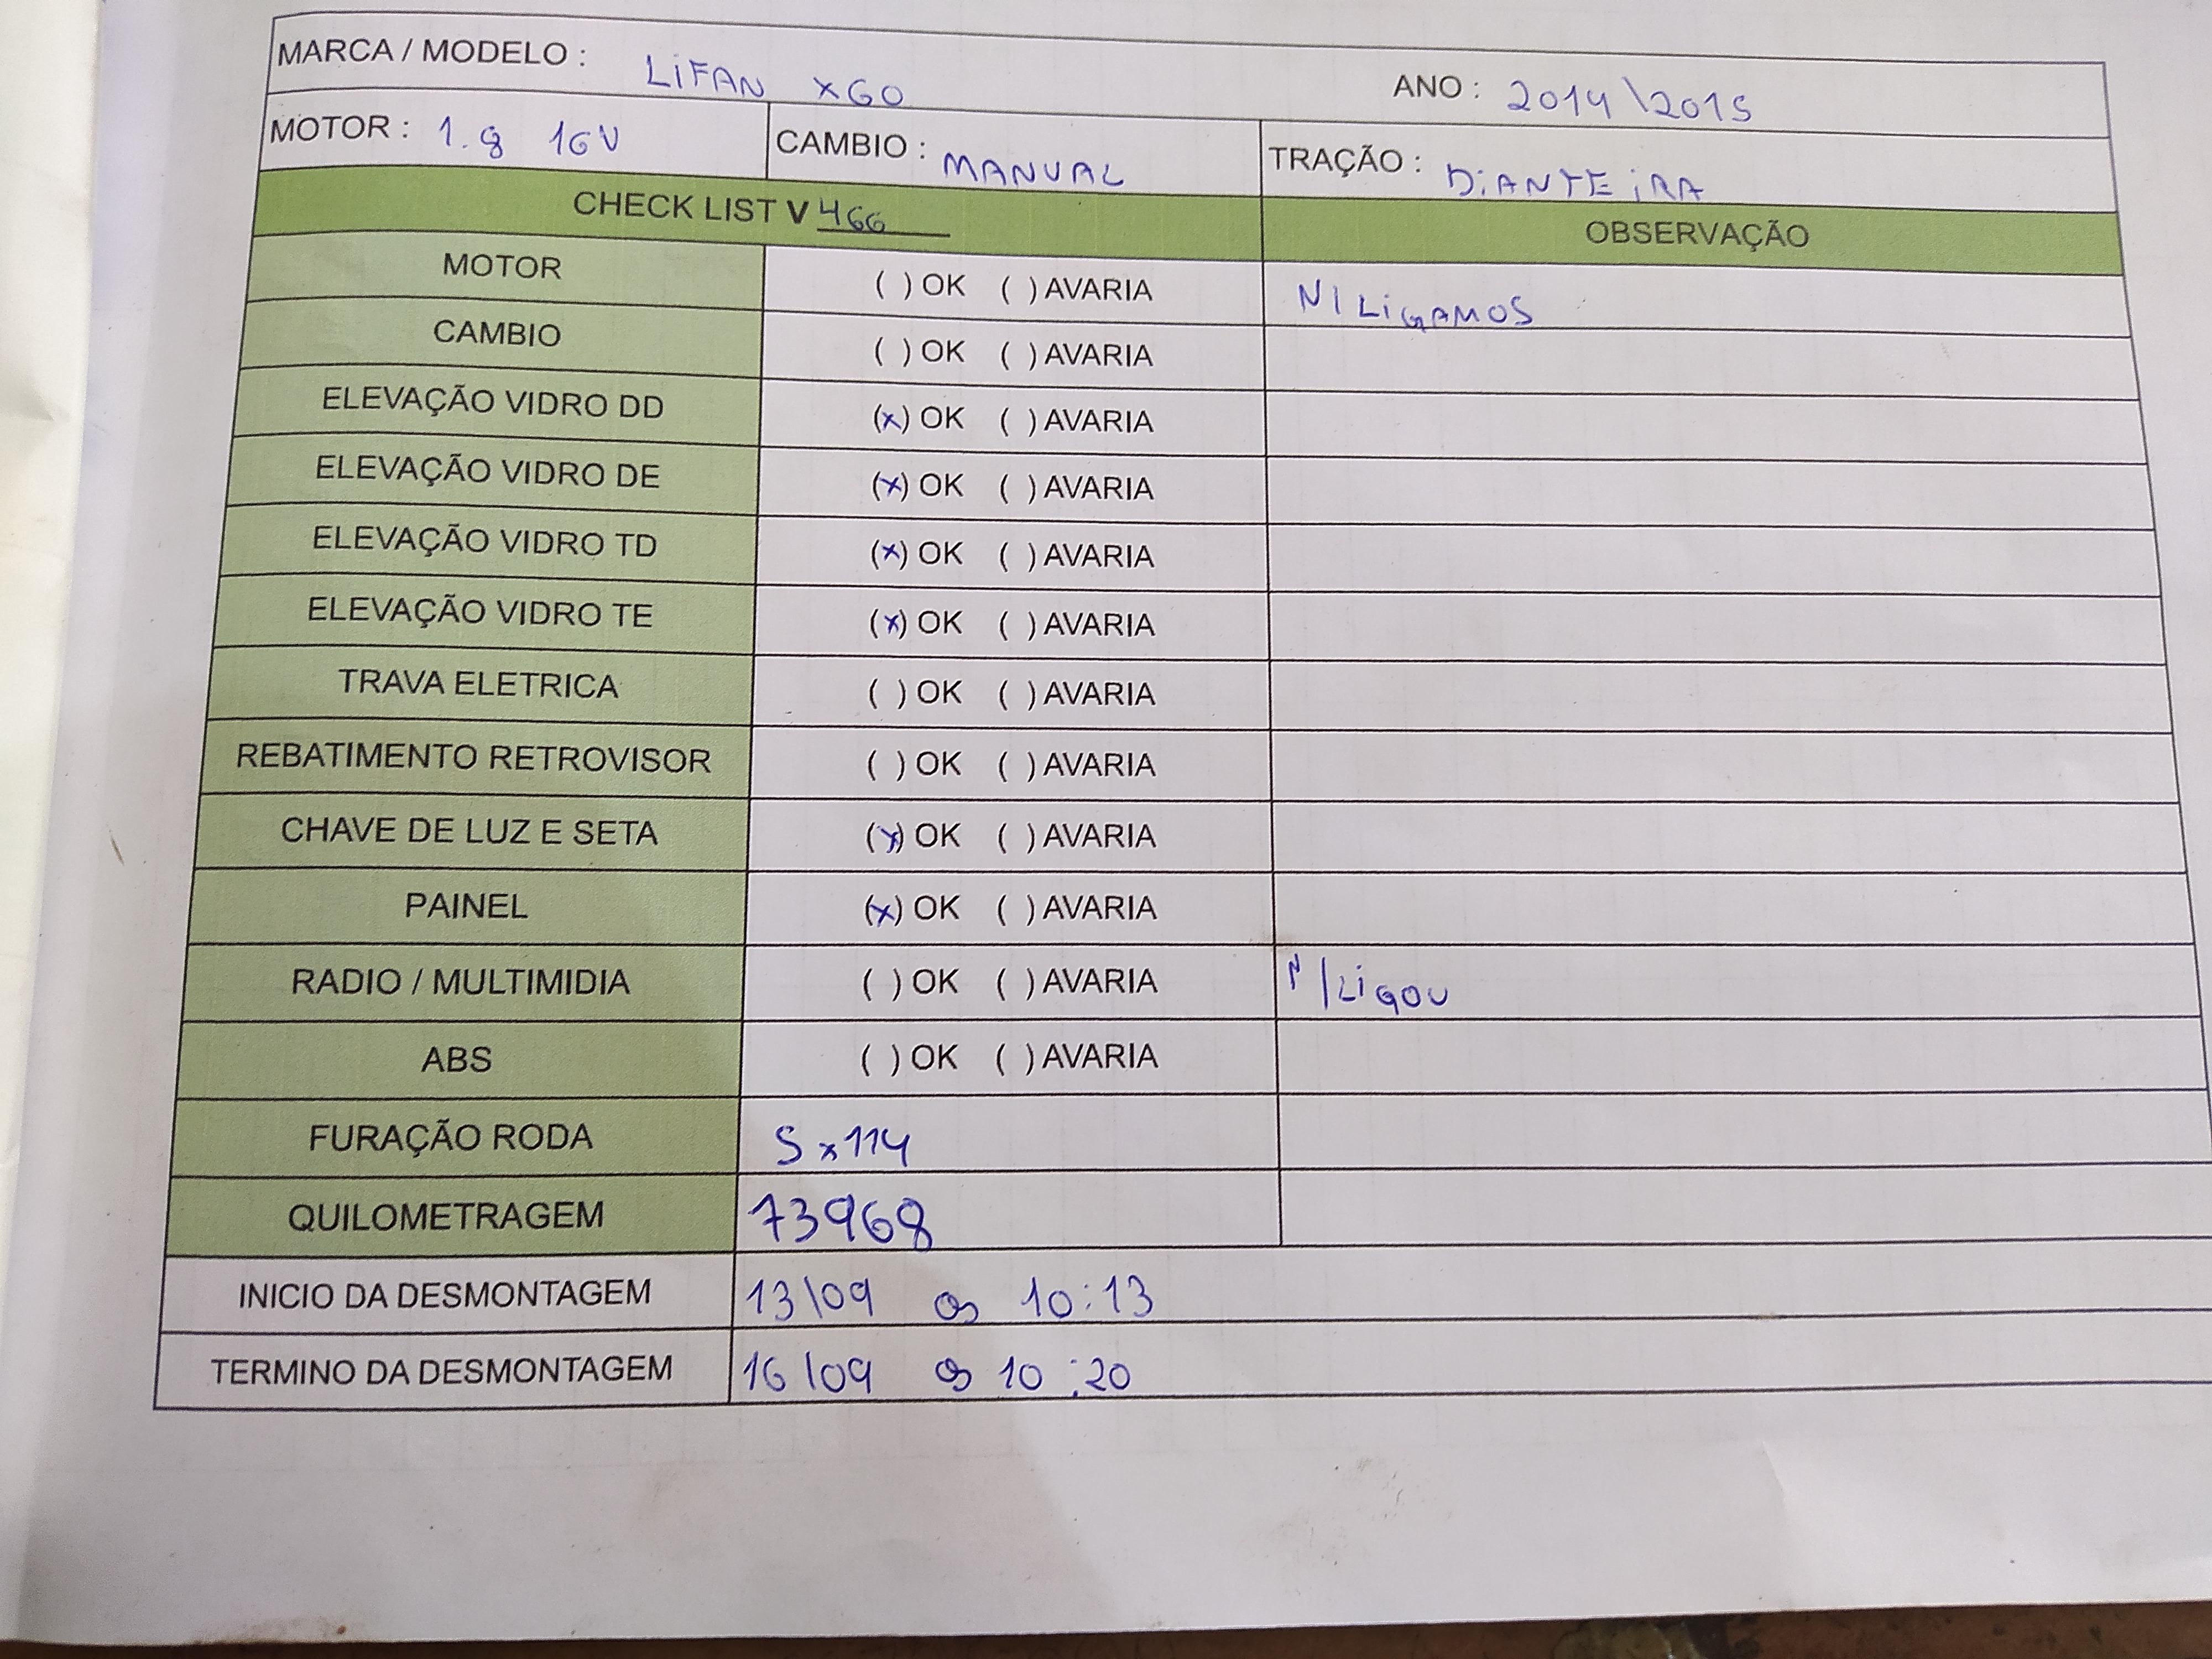 MARCA / MODELO : LIFAN X60 ANO : 2014\2015
MOTOR : 1.8 16V CAMBIO : MANUAL TRAÇÃO : DIANTEIRA
CHECK LIST V 466 OBSERVAÇÃO
MOTOR ( ) OK ( ) AVARIA N/ LIGAMOS
CAMBIO ( ) OK ( ) AVARIA
ELEVAÇÃO VIDRO DD (x) OK ( ) AVARIA
ELEVAÇÃO VIDRO DE (x) OK ( ) AVARIA
ELEVAÇÃO VIDRO TD (x) OK ( ) AVARIA
ELEVAÇÃO VIDRO TE (x) OK ( ) AVARIA
TRAVA ELETRICA ( ) OK ( ) AVARIA
REBATIMENTO RETROVISOR ( ) OK ( ) AVARIA
CHAVE DE LUZ E SETA (x) OK ( ) AVARIA
PAINEL (x) OK ( ) AVARIA
RADIO / MULTIMIDIA ( ) OK ( ) AVARIA N/LIGOU
ABS ( ) OK ( ) AVARIA
FURAÇÃO RODA 5x114
QUILOMETRAGEM 73968
INICIO DA DESMONTAGEM 13\09 as 10:13
TERMINO DA DESMONTAGEM 16\09 as 10:20